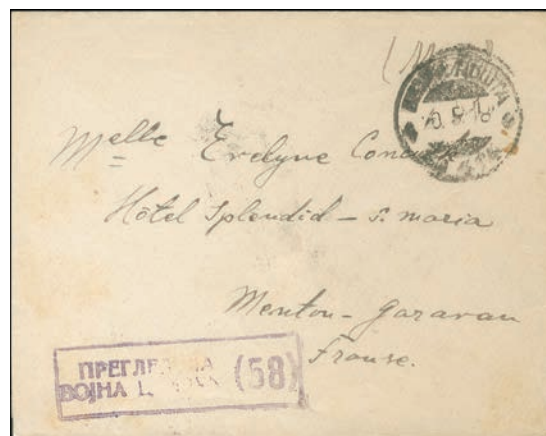 ПОШТА
Melle Evelyne
Hôtel Splendid – S. maria
Menton – Garavan
Franse.
(58)
ВОЈНА